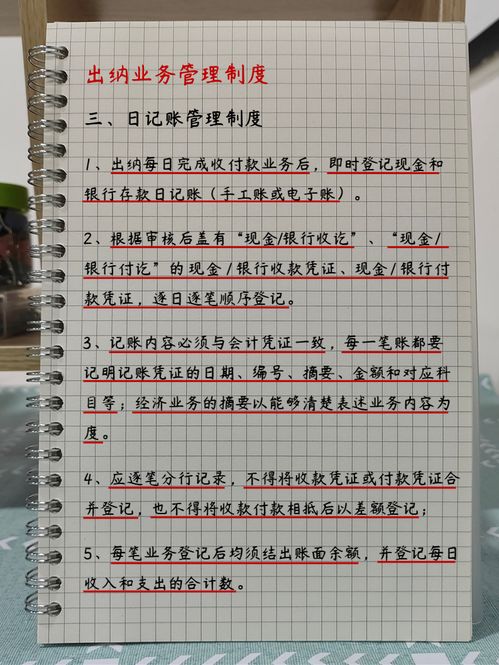 出纳业务管理制度
三、日记账管理制度
1、出纳每日完成收付款业务后，即时登记现金和
银行存款日记账（手工账或电子账）。
2、根据审核后盖有“现金/银行收讫”、“现金/
银行付讫”的现金/银行收款凭证、现金/银行付
款凭证，逐日逐笔顺序登记。
3、记账内容必须与会计凭证一致，每一笔账都要
记明记账凭证的日期、编号、摘要、金额和对应科
目等；经济业务的摘要以能够清楚表述业务内容为
度。
4、应逐笔分行记录，不得将收款凭证或付款凭证合
并登记，也不得将收款付款相抵后以差额登记；
5、每笔业务登记后均须结出账面余额，并登记每日
收入和支出的合计数。